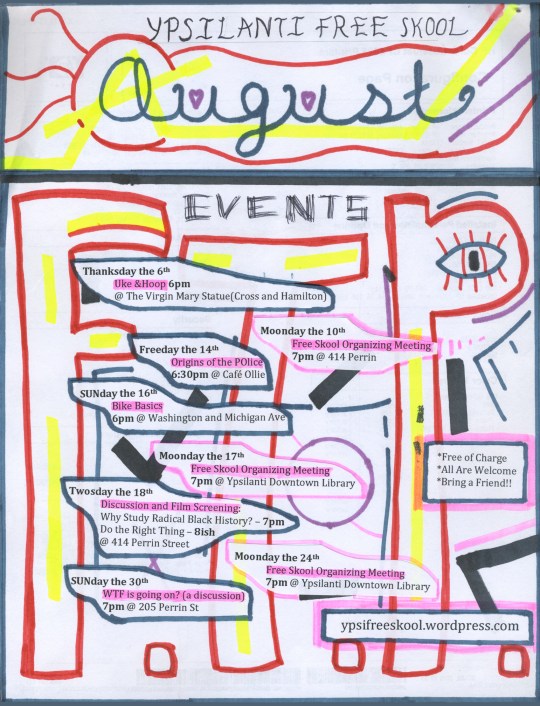 YPSILANTI FREE SKOOL
August
EVENTS
F.T.P.
Thanksday the 6th
Uke &Hoop 6pm
@ The Virgin Mary Statue(Cross and Hamilton)
Moonday the 10th
Free Skool Organizing Meeting
7pm @ 414 Perrin
Freeday the 14th
Origins of the POlice
6:30pm @ Café Ollie
SUNday the 16th
Bike Basics
6pm @ Washington and Michigan Ave
Moonday the 17th
Free Skool Organizing Meeting
7pm @ Ypsilanti Downtown Library
*Free of Charge
*All Are Welcome
*Bring a Friend!!
Twosday the 18th
Discussion and Film Screening:
Why Study Radical Black History? – 7pm
Do the Right Thing – 8ish
@ 414 Perrin Street
Moonday the 24th
Free Skool Organizing Meeting
7pm @ Ypsilanti Downtown Library
SUNday the 30th
WTF is going on? (a discussion)
7pm @ 205 Perrin St
ypsifreeskool.wordpress.com